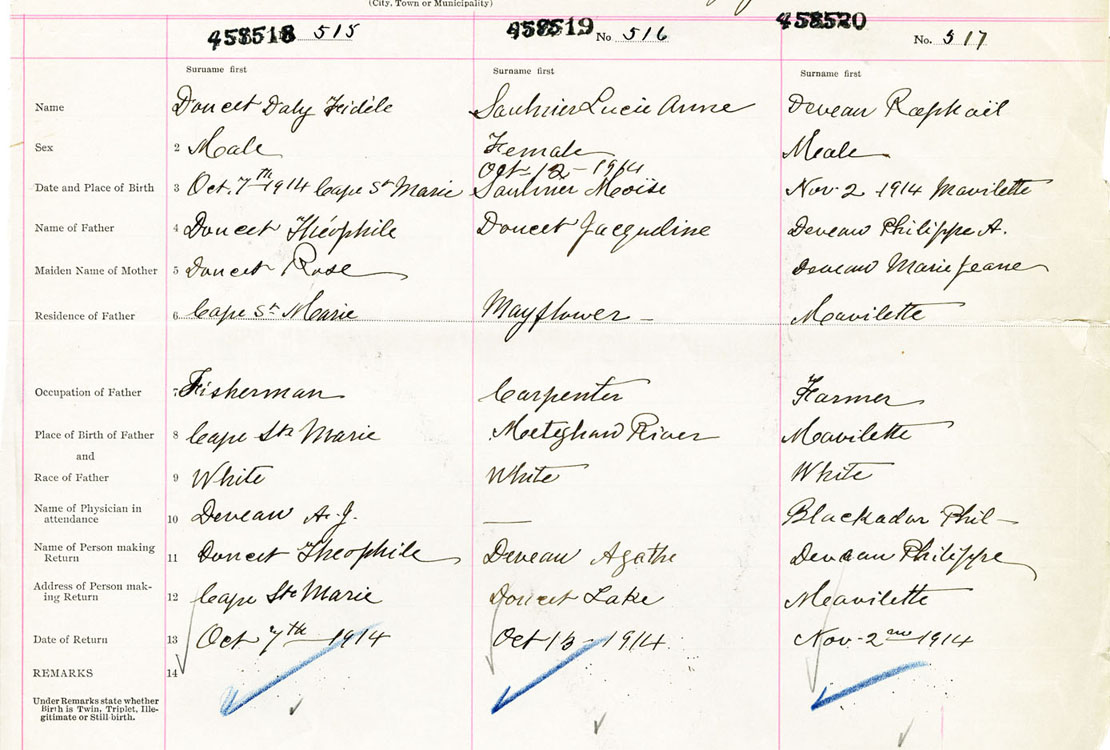 (City, Town or Municipality)
458518 515 458519 No 516 458520 No. 517
Surname first Surname first Surname first
Name Doucet Daly Fidèle Saulnier Lucie Anne Deveau Raphaël
Sex 2 Male Female Male
Oct-12-1914
Date and Place of Birth 3 Oct. 7th 1914 Cape St Marie Saulnier Moïse Nov. 2 1914 Mavilette
Name of Father 4 Doucet Théophile Doucet Jacqueline Deveau Philippe A.
Maiden Name of Mother 5 Doucet Rose Deveau Marie Jeane
Residence of Father 6 Cape St Marie Mayflower – Mavilette
Occupation of Father 7 Fisherman Carpenter Farmer
Place of Birth of Father 8 Cape Ste Marie Meteghan River Mavilette
and
Race of Father 9 White White White
Name of Physician in
attendance 10 Deveau A. J. — Blackadar Phil–
Name of Person making
Return 11 Doucet Theophile Deveau Agathe Deveau Philippe
Address of Person mak-
ing Return 12 Cape Ste Marie Doucet Lake Mavilette
Date of Return 13 Oct 7th 1914 Oct 13-1914 Nov-2nd 1914
REMARKS 14
Under Remarks state whether
Birth is Twin, Triplet, Ille-
gitimate or Still-birth.